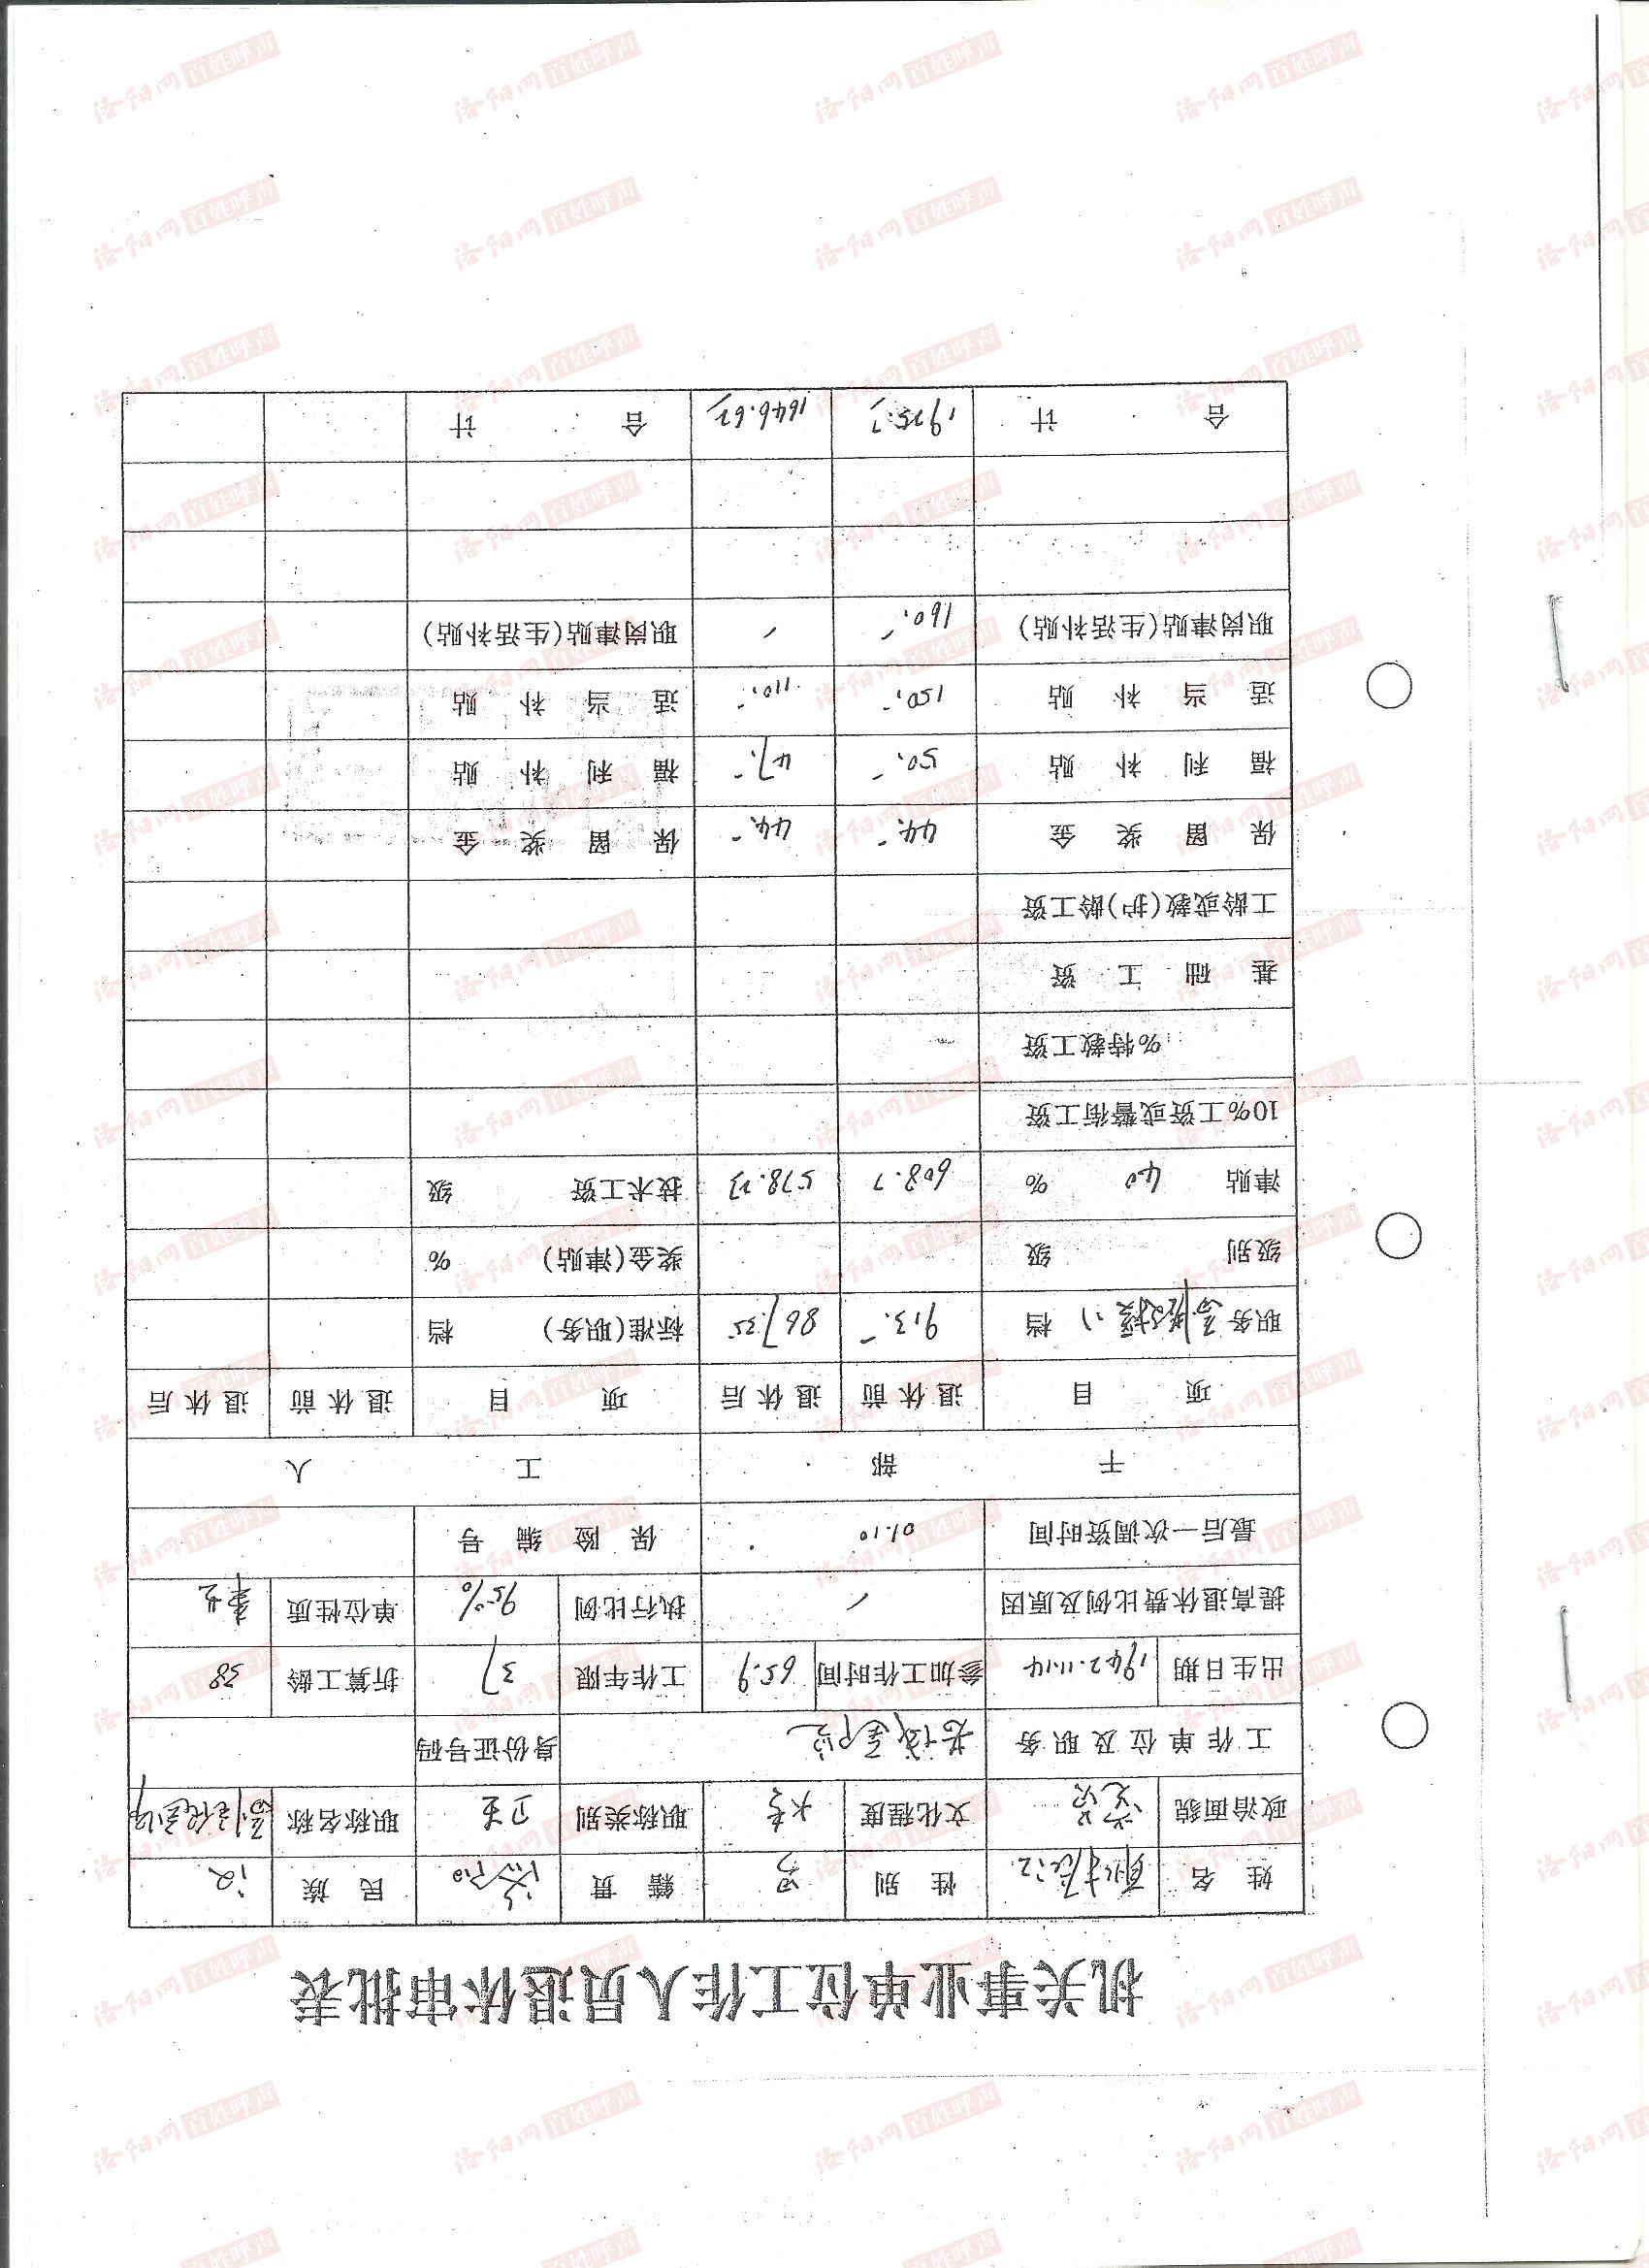 机关事业单位工作人员退休审批表
姓 名 性 别 男 籍 贯 洛阳 民 族 汉
政治面貌 党员 文化程度 大专 职称类别 卫生 职称名称
工作单位及职务 身份证号码
出生日期 1942.11.14 参加工作时间 65.9 工作年限 37 折算工龄 38
提高退休费比例及原因 / 执行比例 95% 单位性质 事业
最后一次调资时间 01.10 保 险 编 号
干 部 工 人
项 目 退休前 退休后 项 目 退休前 退休后
职务 档 913.- 867.35 标准(职务) 档
级别 级 奖金(津贴) %
津贴 40 % 608.7 578.27 技术工资 级
10%工资或警衔工资
%特教工资
基 础 工 资
工龄或教(护)龄工资
保 留 奖 金 44.- 44.- 保 留 奖 金
福 利 补 贴 50.- 47.- 福 利 补 贴
适 当 补 贴 150.- 110.- 适 当 补 贴
职岗津贴(生活补贴) 160.- / 职岗津贴(生活补贴)
合 计 1925.7 1646.62 合 计
洛阳网 百姓呼声